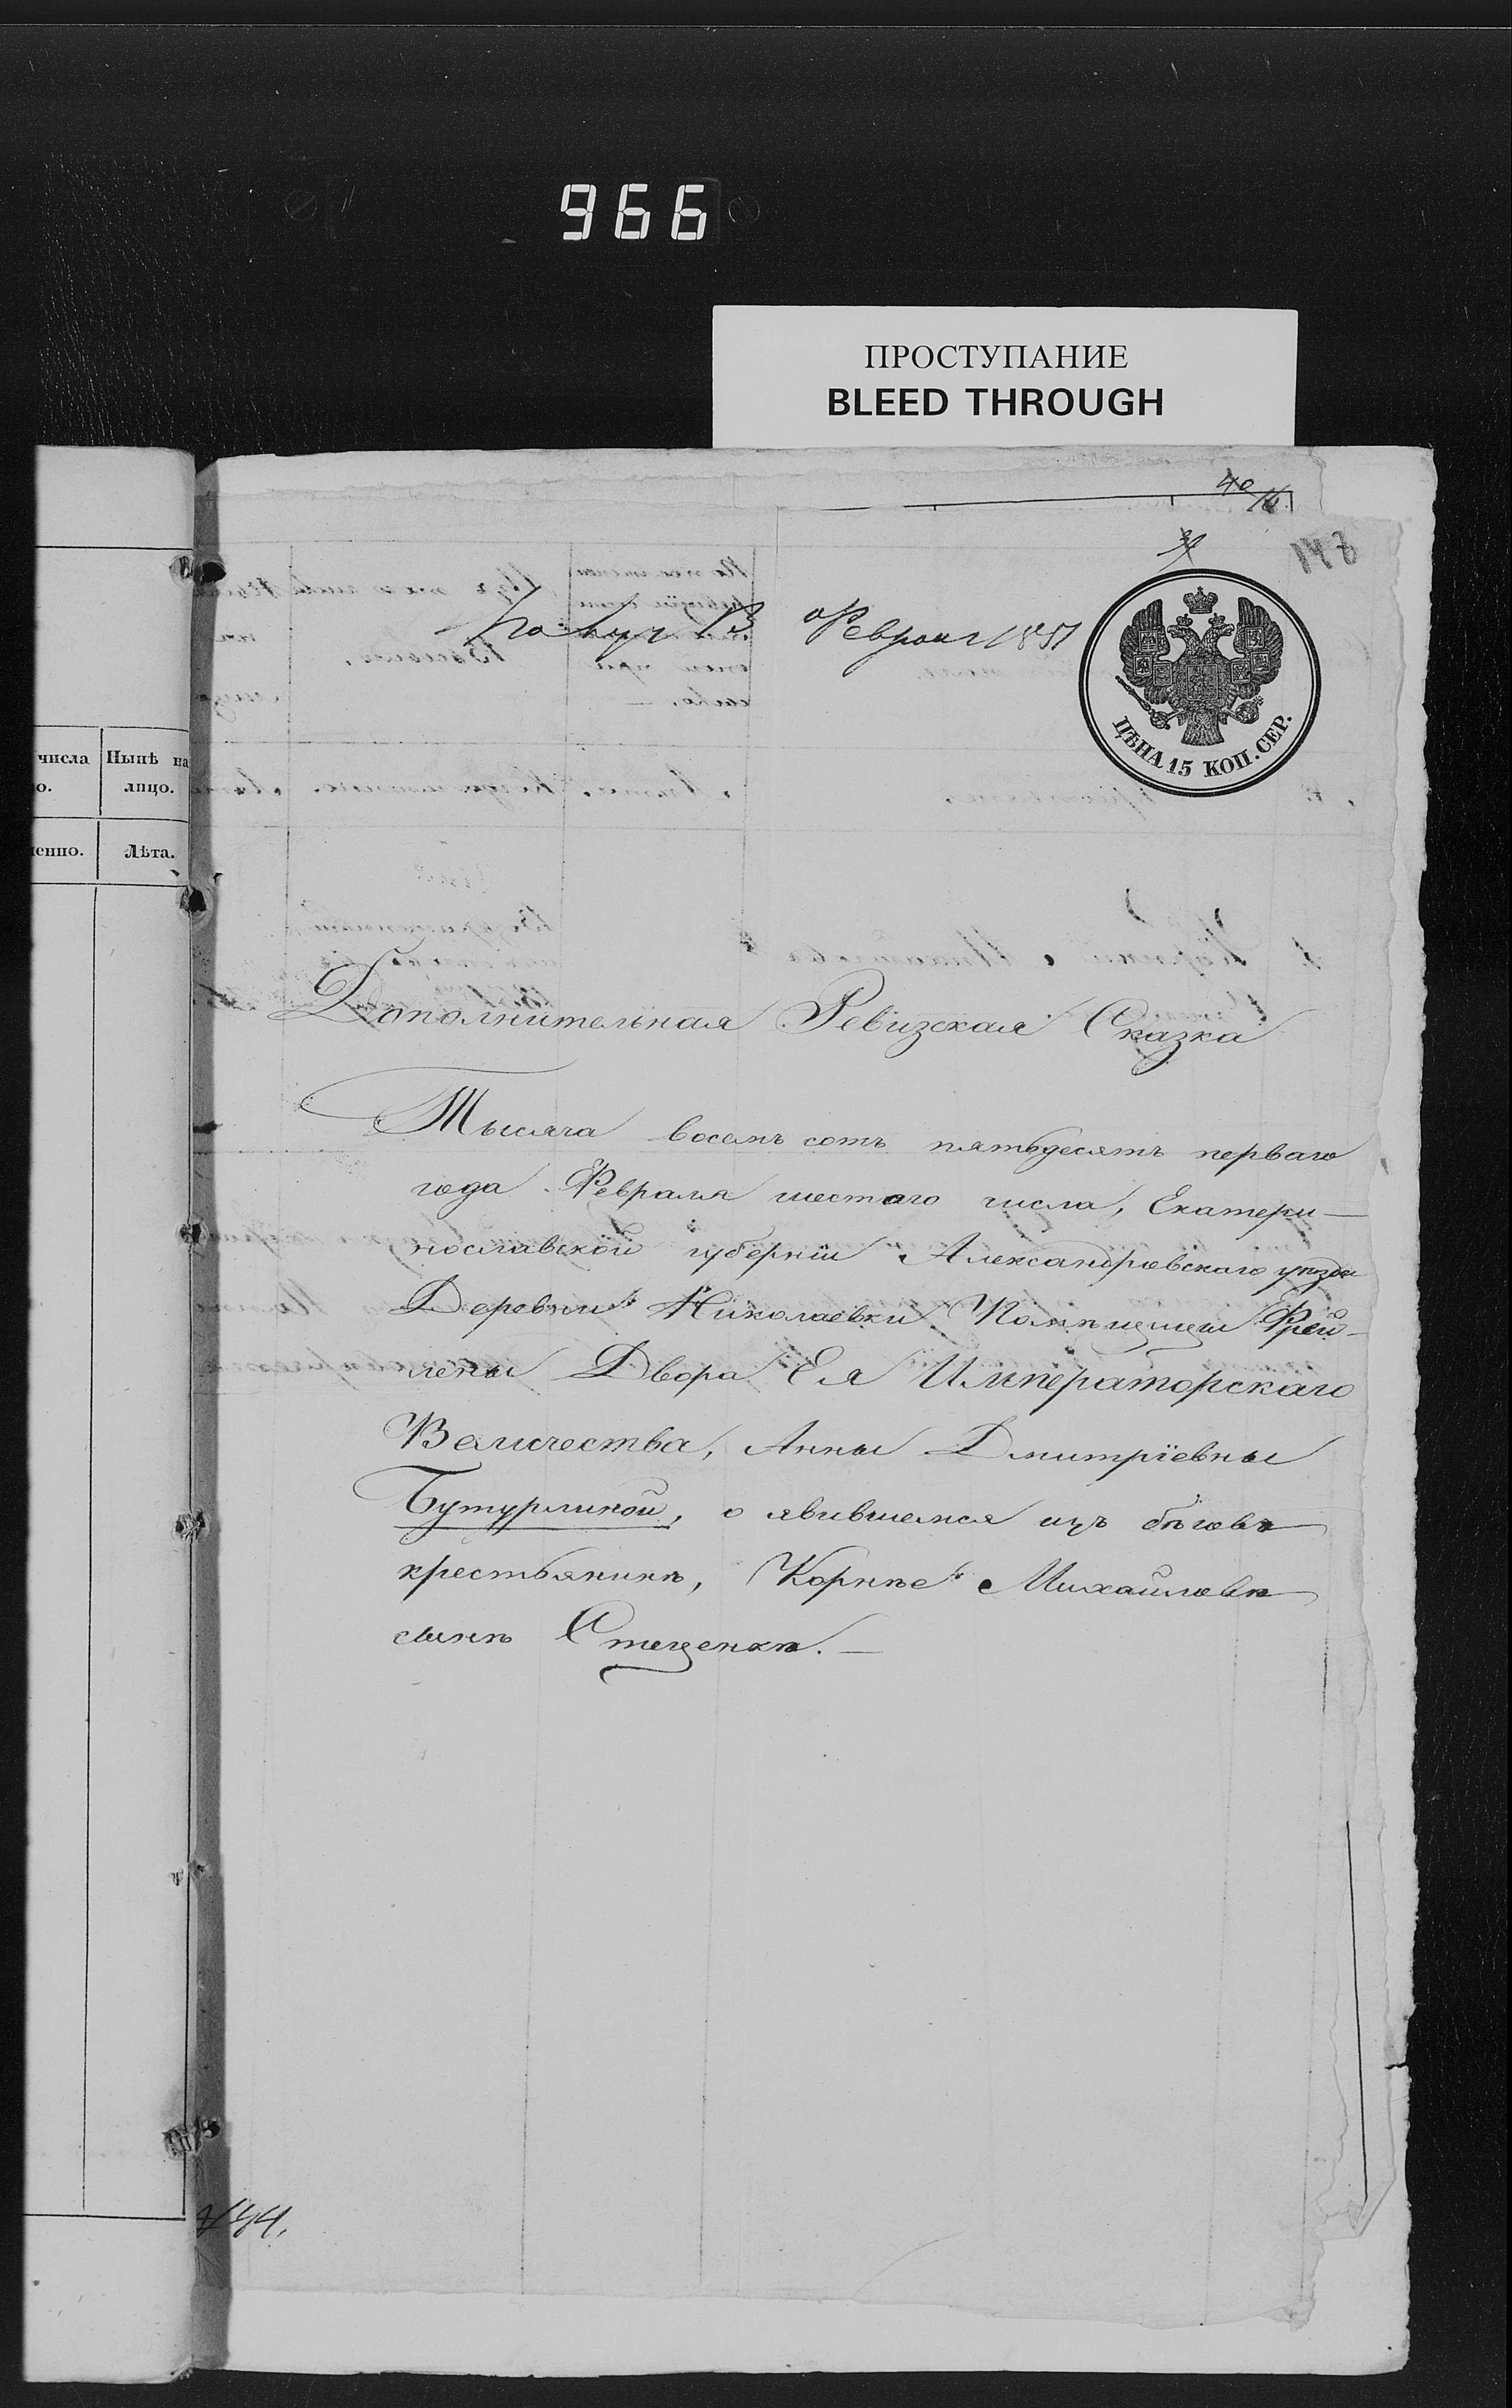 966
ПРОСТУПАНИЕ
BLEED THROUGH
40
числа
о.
Нынѣ на
лицо.
енно.
Лѣта.
Получ 13 Февраля 1851
ЦѢНА 15 КОП. СЕР.
Дополнительная Ревизская Сказка
Тысяча восемъ сотъ пятьдесятъ перваго
года Февраля шестаго числа, Екатери-
нославской губерніи Александровскаго уѣзда
Деревни Николаевки Помѣщицы Фрей-
лены Двора Ея Императорскаго
Величества, Анны Дмитріевны
Бутурлиной, о явившемся изъ бѣговъ
крестьянинѣ, Корнѣе Михайловѣ
сынѣ Стеценкѣ.